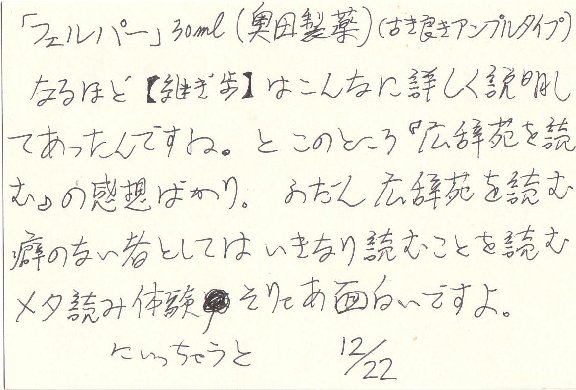 「フェルパー」30ml(奥田製薬)(古き良きアンプルタイプ)
なるほど【継ぎ歩】はこんなに詳しく説明し
てあったんですね。とこのところ『広辞苑を読
む』の感想ばかり。ふだん広辞苑を読む
癖のない者としてはいきなり読むことを読む
メタ読み体験、そりゃあ面白いですよ。
にいっちゃうと 12/22